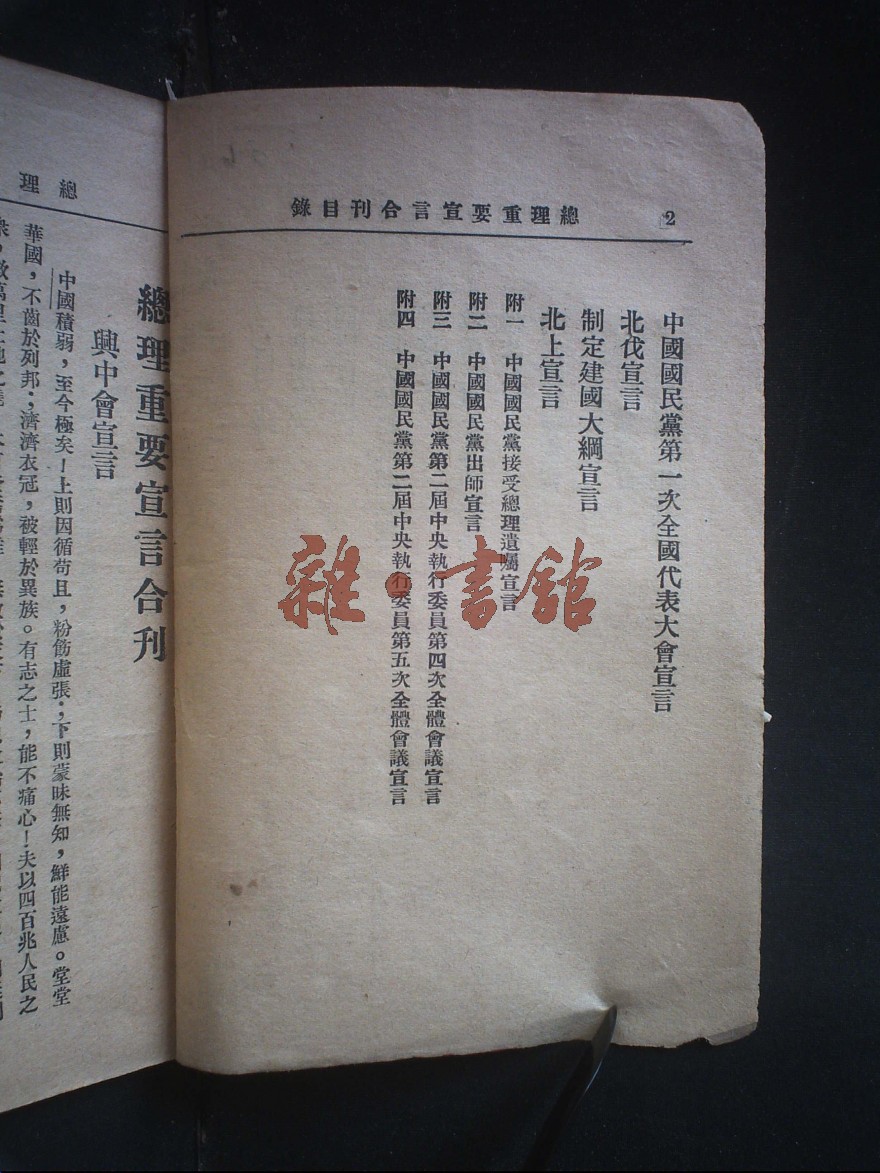 2
總理重要宣言合刊目錄
中國國民黨第一次全國代表大會宣言
北伐宣言
制定建國大綱宣言
北上宣言
附一 中國國民黨接受總理遺囑宣言
附二 中國國民黨出師宣言
附三 中國國民黨第二屆中央執行委員第四次全體會議宣言
附四 中國國民黨第二屆中央執行委員第五次全體會議宣言
雜·書館
總理
總理重要宣言合刊
興中會宣言
中國積弱，至今極矣！上則因循苟且，粉飾虛張；下則蒙昧無知，鮮能遠慮。堂堂
華國，不齒於列邦；濟濟衣冠，被輕於異族。有志之士，能不痛心！夫以四百兆人民之